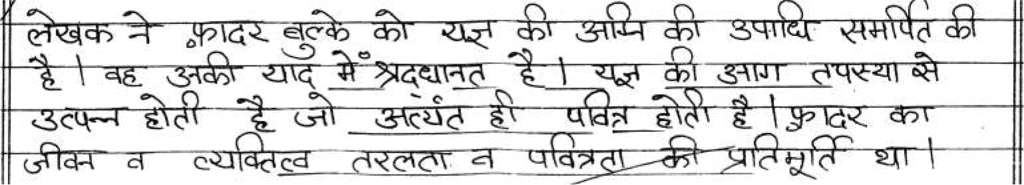 लेखक ने फ़ादर बुल्के को यज्ञ की अग्नि की उपाधि समर्पित की
है। वह उनकी याद में श्रद्धानत है। यज्ञ की आग तपस्या से
उत्पन्न होती है जो अत्यंत ही पवित्र होती है। फ़ादर का
जीवन व व्यक्तित्व तरलता व पवित्रता की प्रतिमूर्ति था।